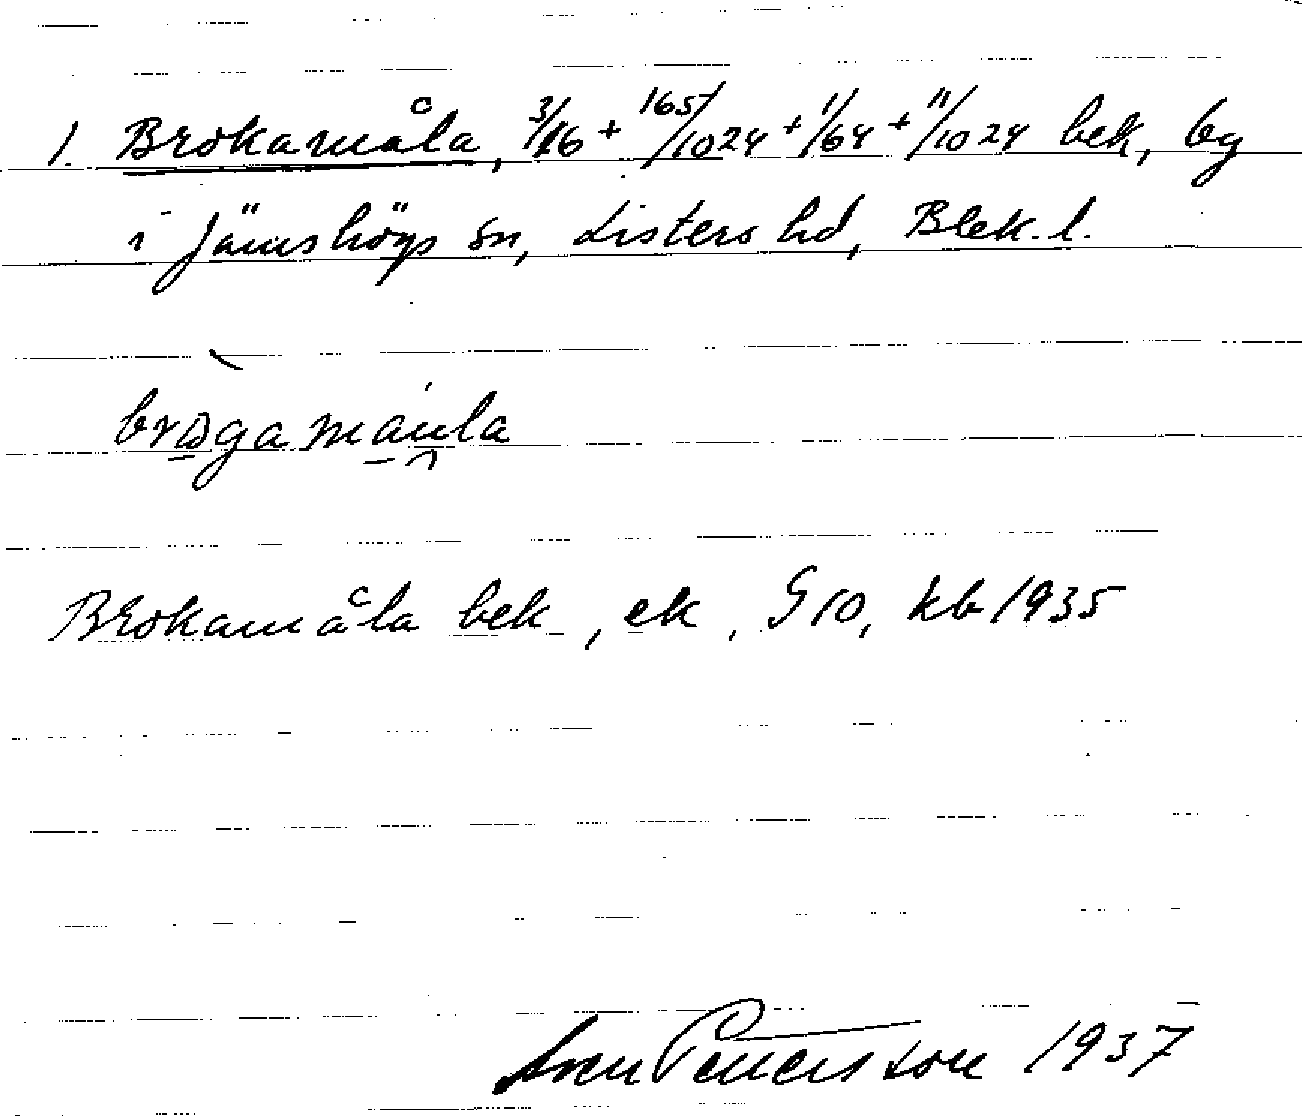 1. Brokamåla, 3/16 + 165/1024 + 1/64 + 11/1024 bek, by
i Jämshögs sn, Listers hd, Blek. l.
brògamáula
Brokamåla bek, ek, S10, kb 1935
Sven 1937